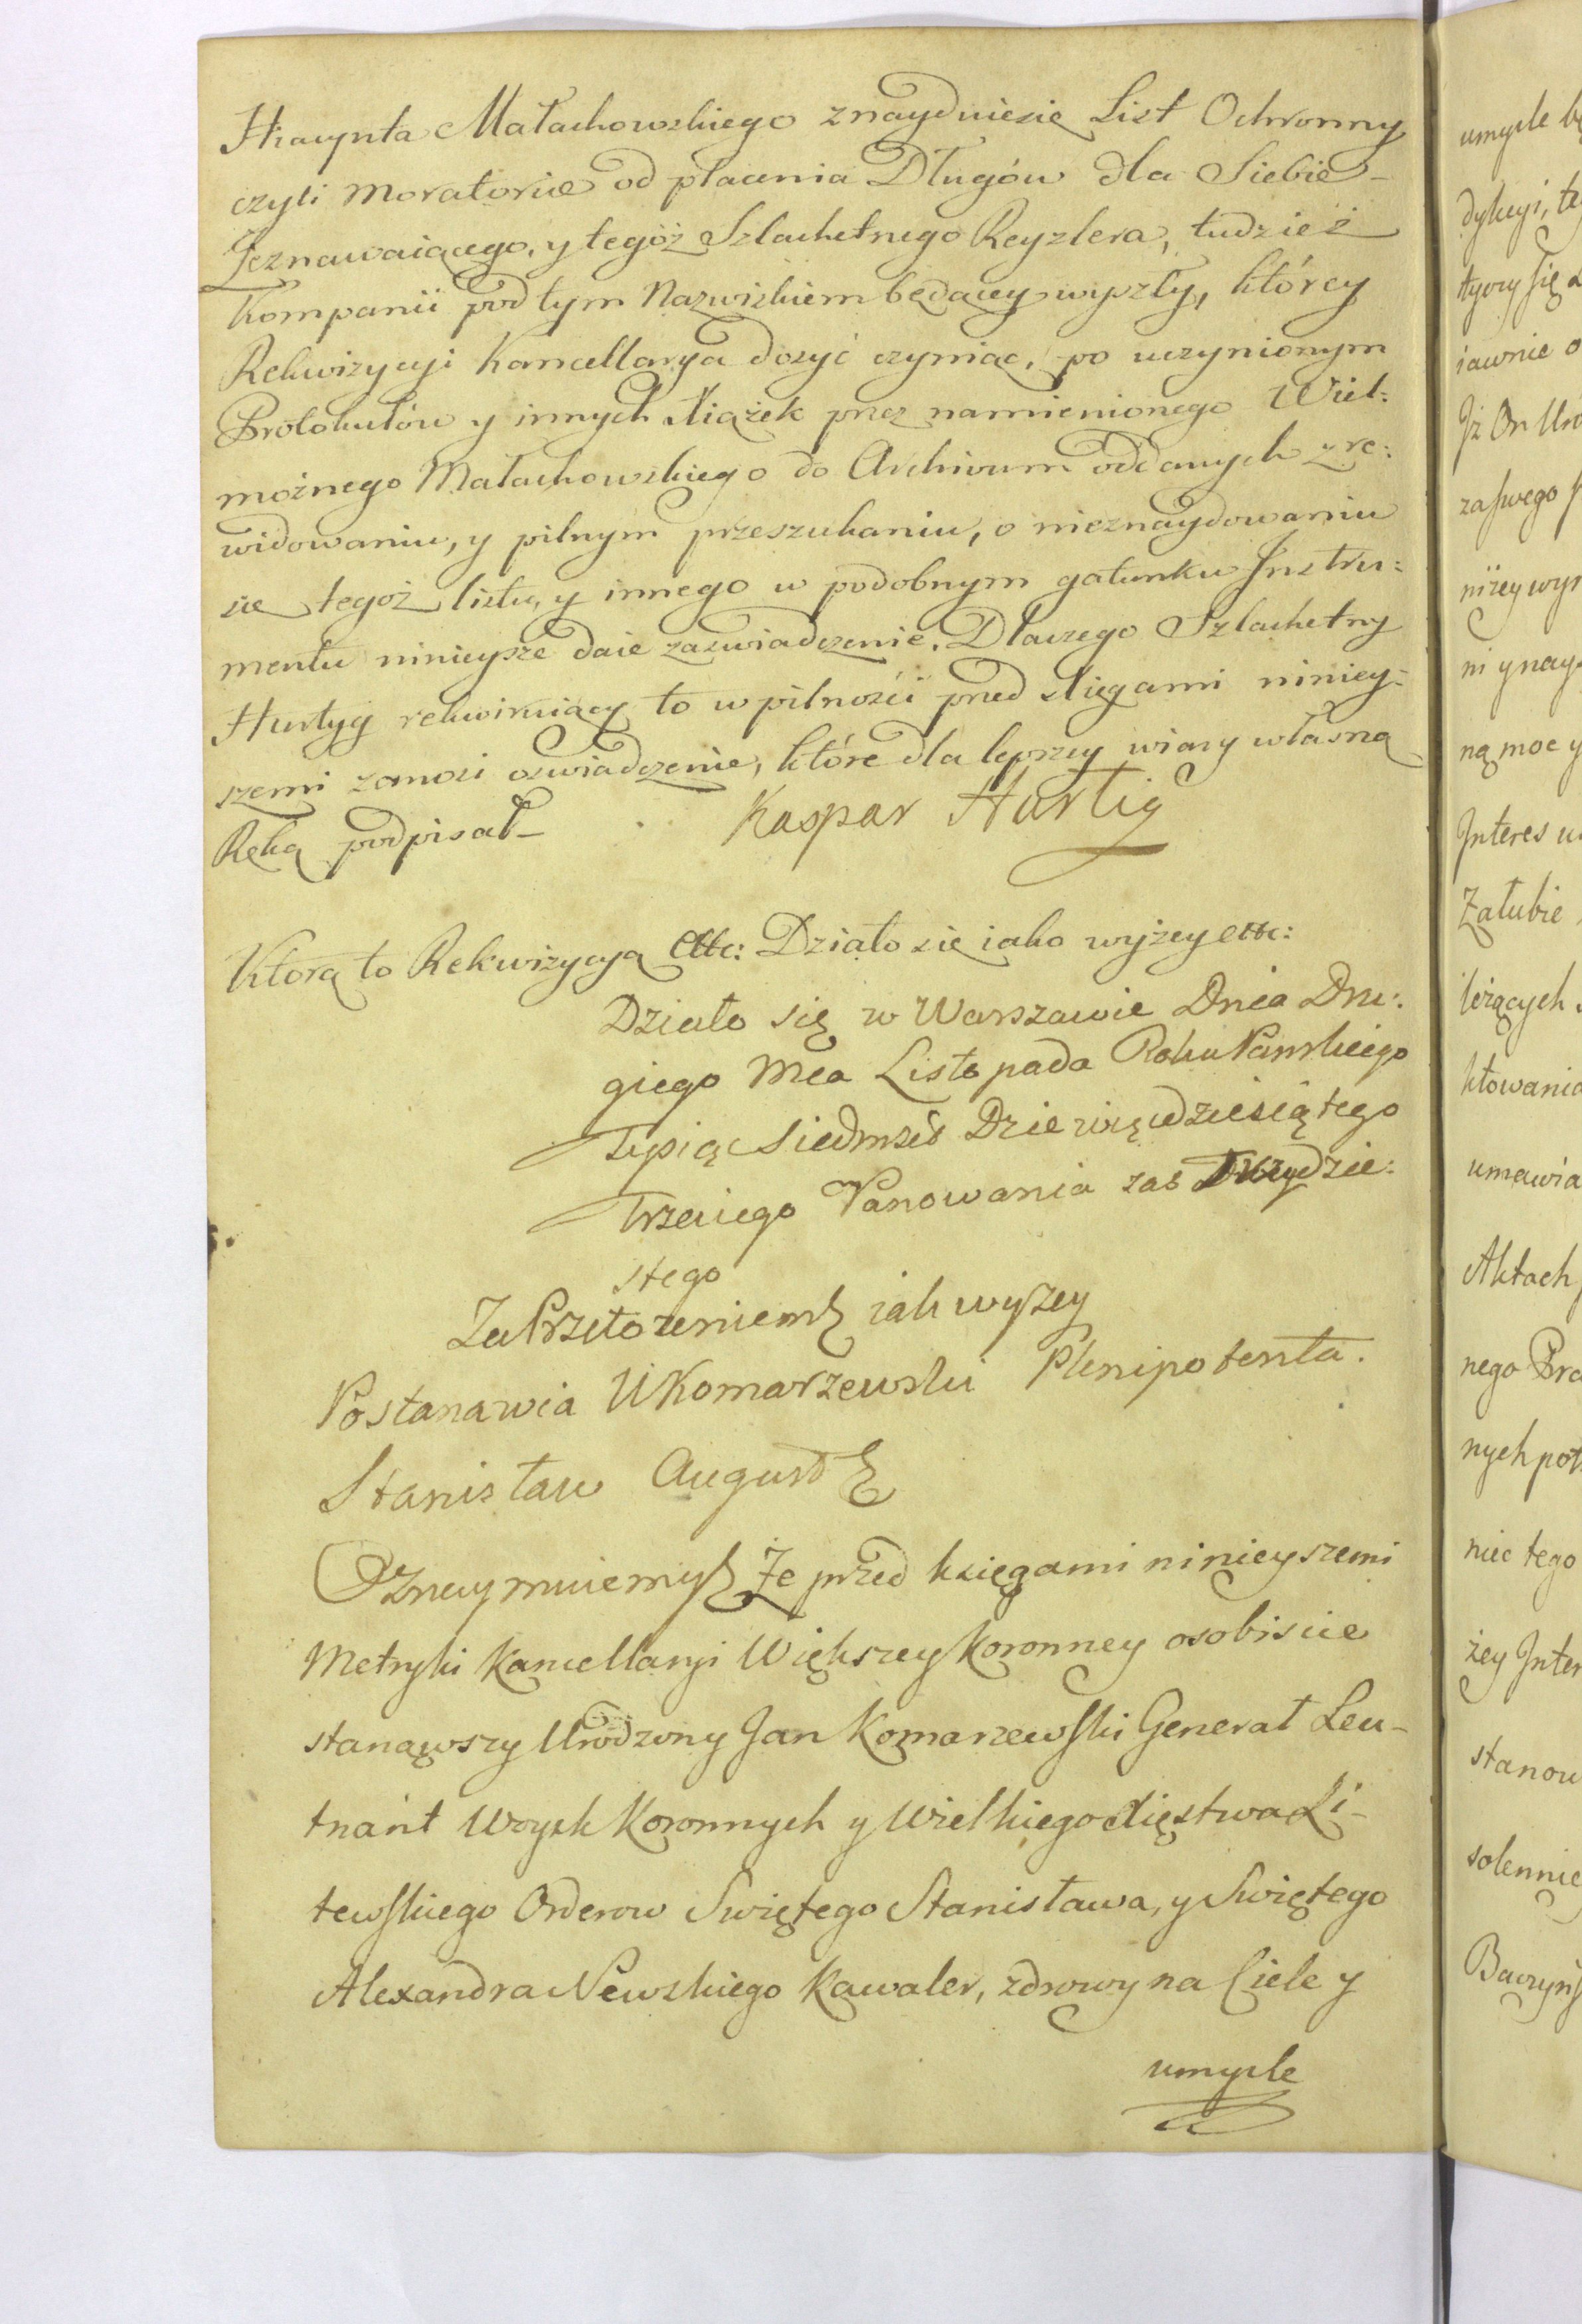 Hiacynta Małachowskiego znayduiesię List Ochronny
czyli Moratorium od płacenia Długów dla Siebie
Zeznawaiącego, y tegoż Szlachetnego Reyzlera, tudzież
Kompanii pod tym Nazwiskiem będącey wyszły, którey
Rekwizycyi Kancellarya dosyć czyniąc, po uczynionym
Protokułów y innych Xiążek przez namienionego Wiel:
możnego Małachowskiego do Archivum oddanych zre:
widowaniu, y pilnym przeszukaniu, o nieznaydowaniu
się tegoż listu, y innego w podobnym gatunku Instru:
mentu ninieysze daie zaświadczenie. Dlaczego Szlachetny
Hurtyg rekwiruiący to w pilności przed Xięgami niniey:
szemi zanosi oświadczenie, które dla lepszey wiary własną
Ręką podpisał
Kaspar Hurtig
Ktorą to Rekwizycyą ettc: Działo się iako wyżey ettc:
Działo się w Warszawie Dnia Dru:
giego Mca Listopada Roku Panskiego
Tysiąc Siedmset Dziewięcdziesiątego
Trzeciego Panowania zas Trzydzie:
stego
Za Przełozeniem iak wyzey
Postanawia U Komarzewski Plenipotenta.
Stanisław August
Oznaymuiemy Że przed księgami ninieyszemi
Metryki Kancellaryi Większey Koronney osobiscie
stanąwszy Urodzony Jan Komarzewski Generał Leu-
tnant Woysk Koronnych y Wielkiego Xięstwa Li-
tewskiego Orderow Swiętego Stanisława, y Swiętego
Alexandra Newskiego Kawaler, zdrowy na Ciele y
umysle
umysle
dykcyi,
tyczy się
iawnie
Jż On
za swego
niżey
ni y
ną moc y
Interes
Załubie
kłowania
umawia
Aktach
nego
nych
niec tego
żey
stanow
solennie